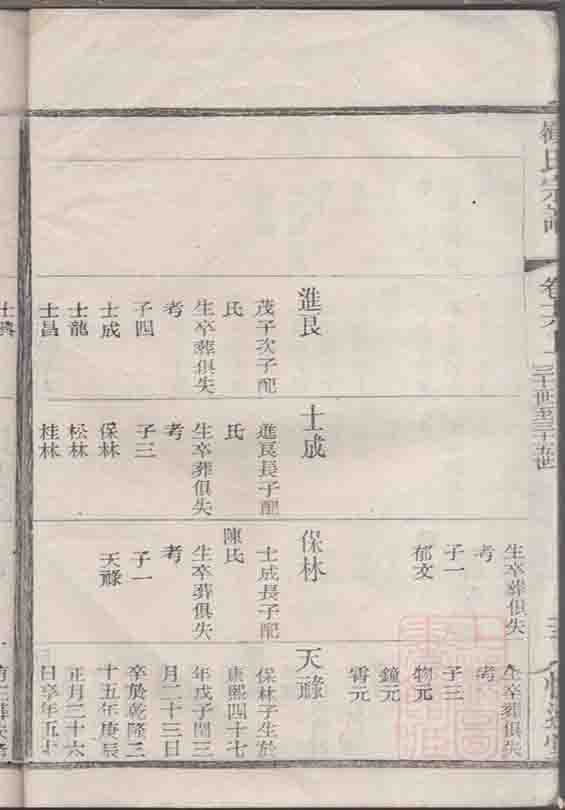 氏宗譜
三十世至三十五世
進良
茂千次子配
氏
生卒葬俱失
考
子四
士成
士龍
士昌
士成
進良長子配
氏
生卒葬俱失
考
子三
保林
松林
桂林
生卒葬俱失
考
子一
郁文
保林
士成長子配
陳氏
生卒葬俱失
考
子一
天祿
生卒葬俱失
考
子三
物元
鐘元
霄元
天祿
保林子生於
康熙四十七
年戊子閏三
月二十三日
卒於乾隆二
十五年庚辰
正月二十六
日享年五十